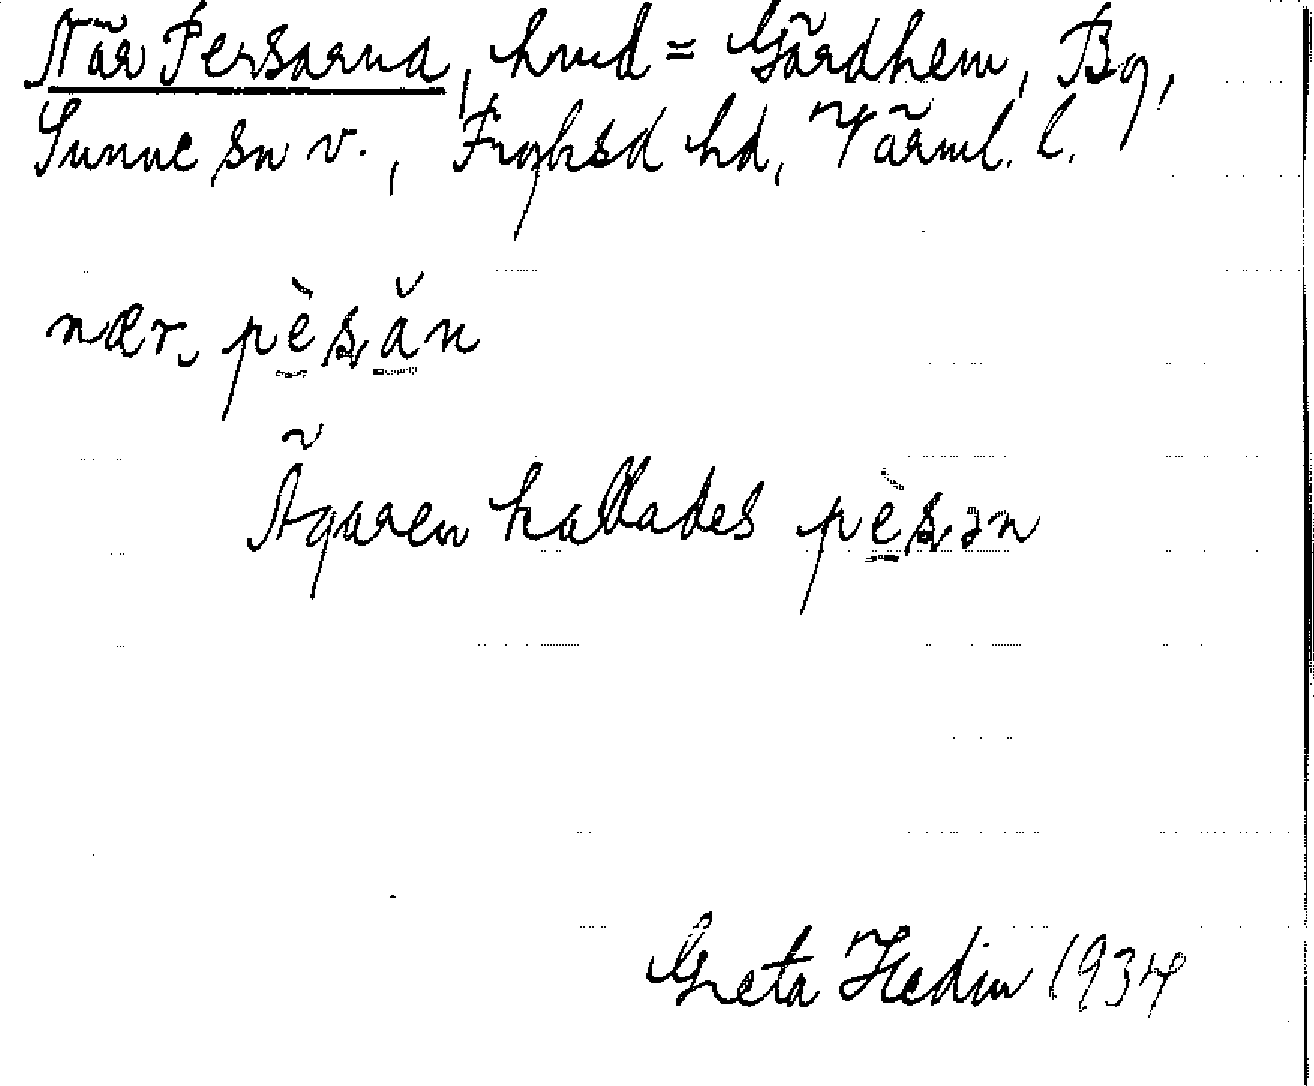 När Persarna, hmd = Gärdhem, By,
Sunne sn v., Fryksd hd, Värml. l.
nær. pès̩ăn
Ägaren kallades pès̩ən
Greta Hedin 1934